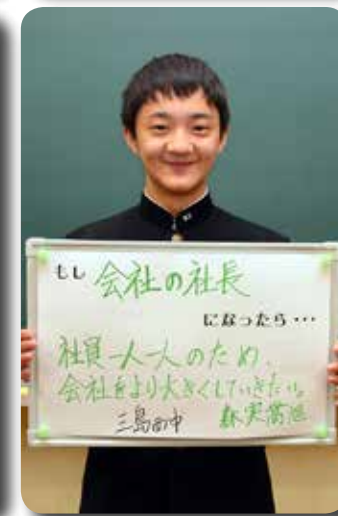 もし 会社の社長
になったら…
社員一人一人のため、
会社をより大きくしていきたい。
三島南中 森実